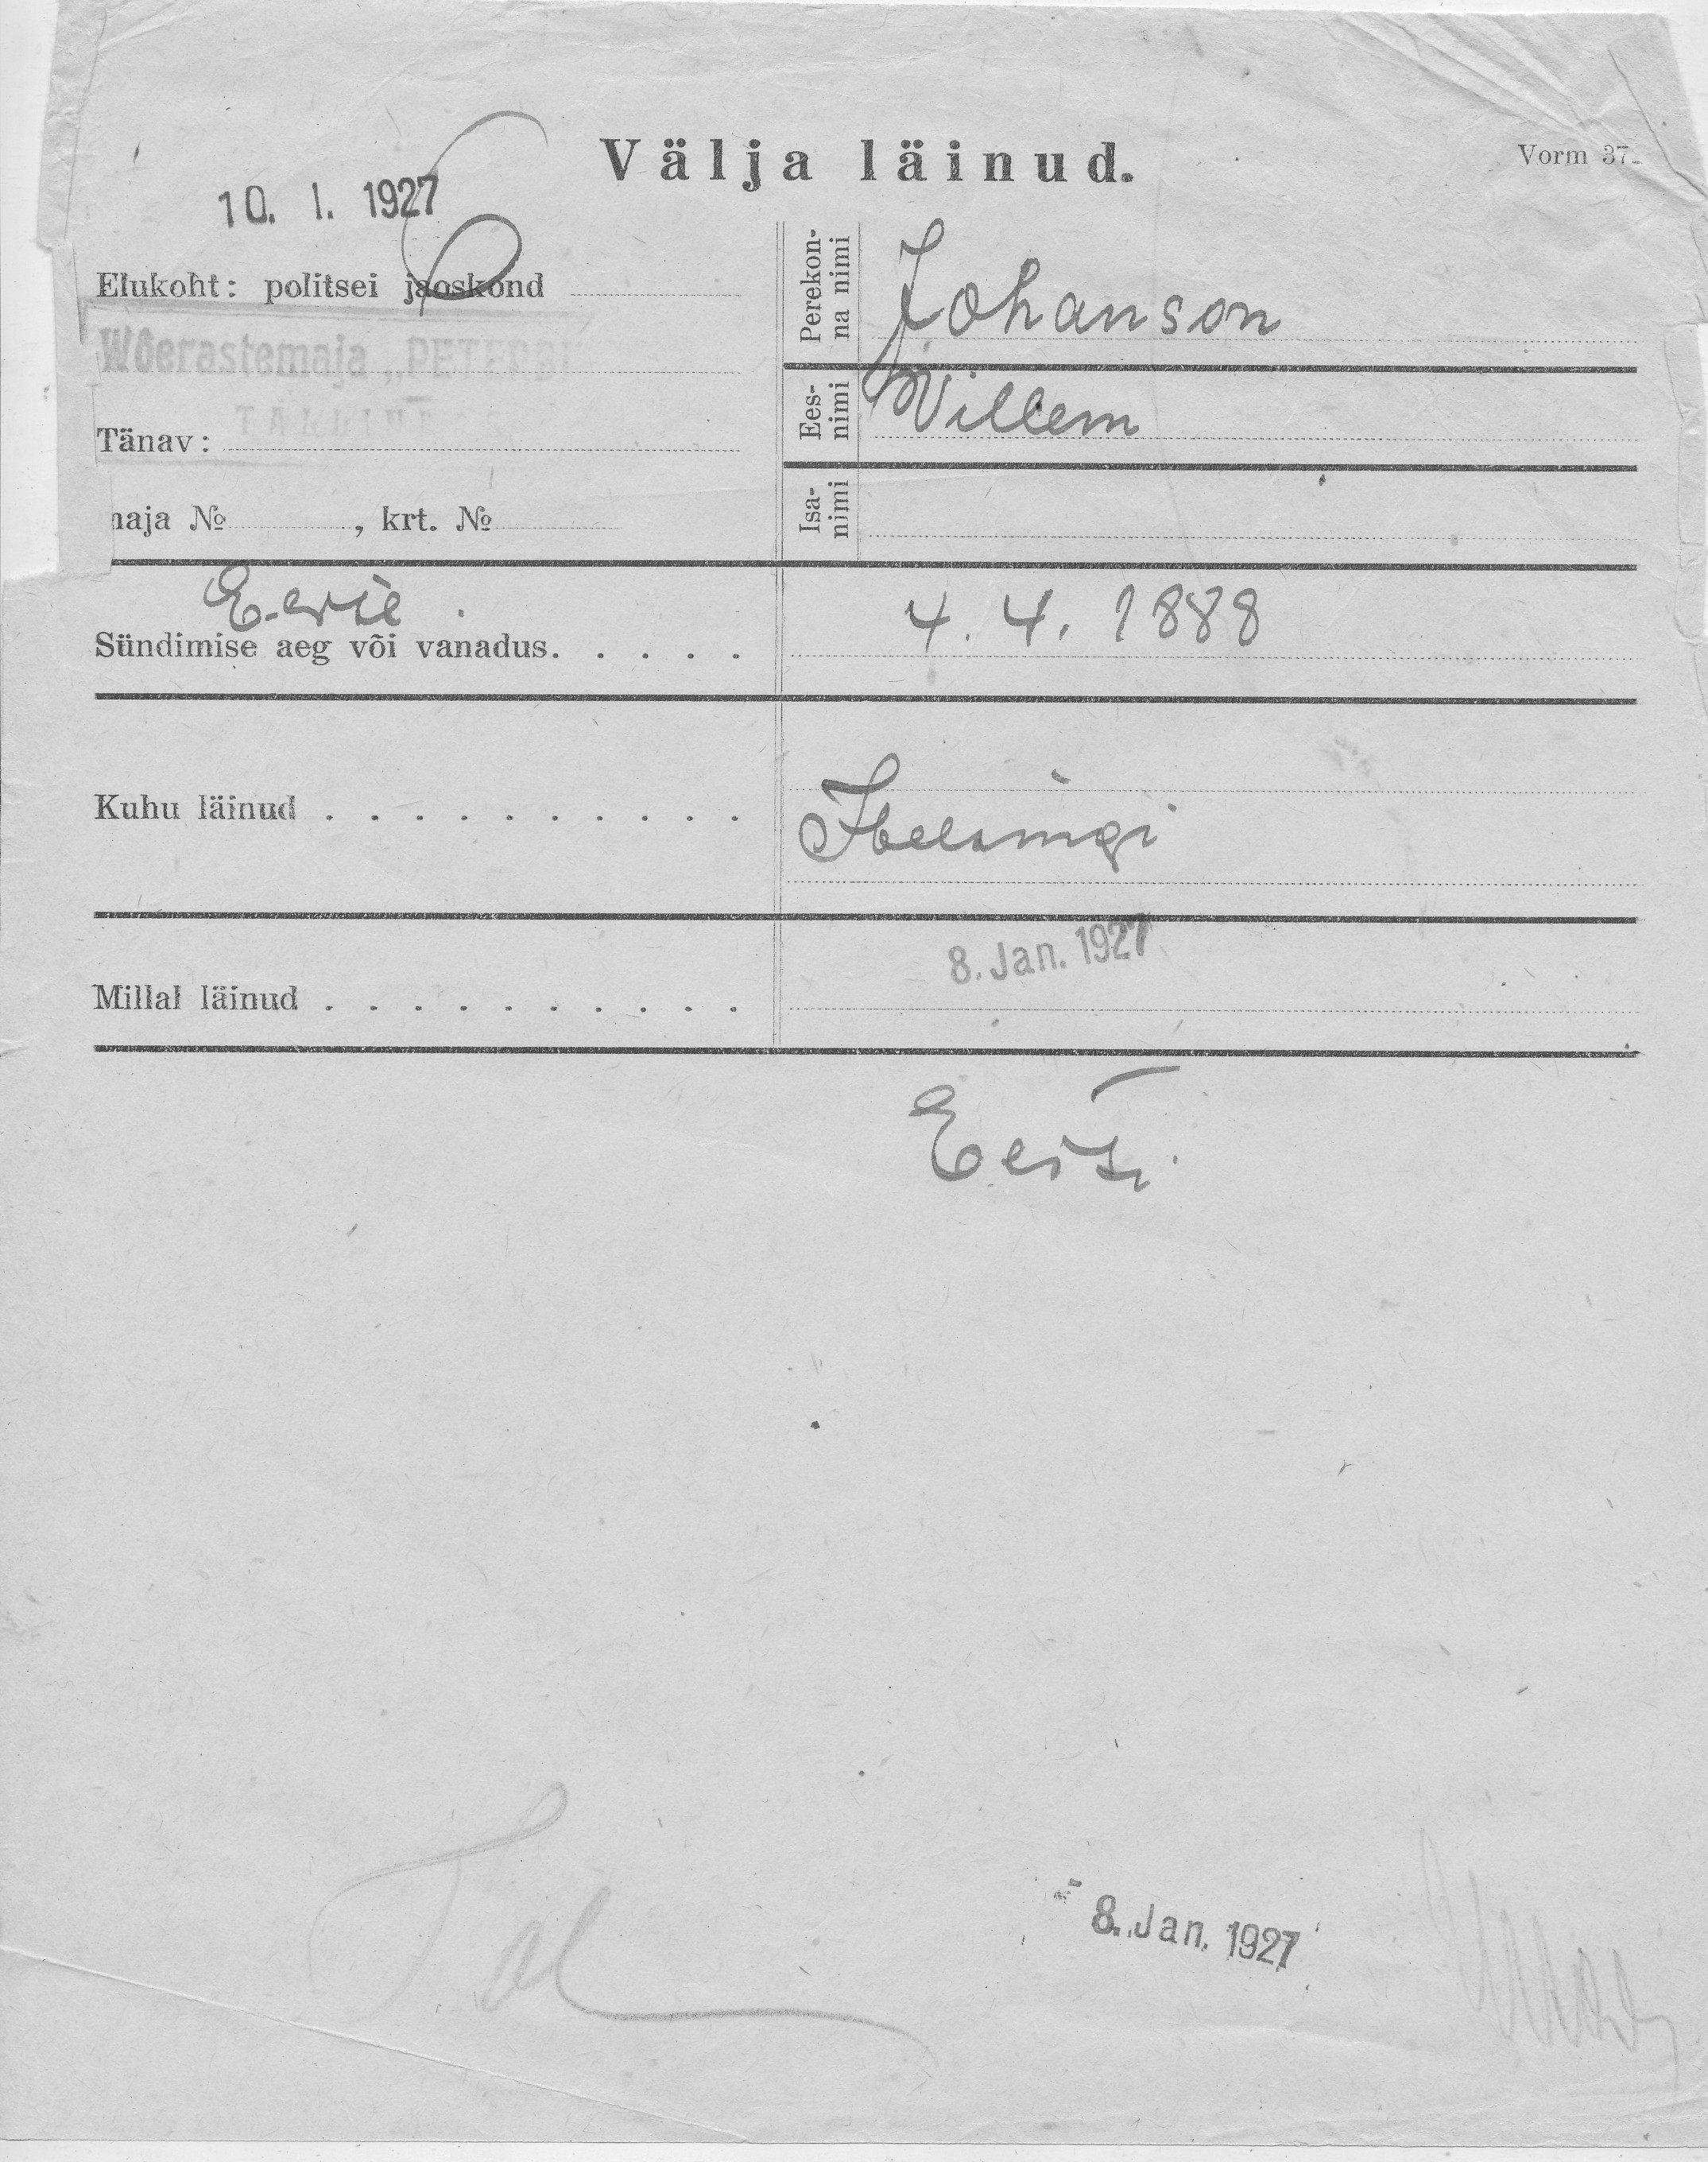 Välja läinud.
Vorm 37.
10. I. 1927
Elukoht: politsei jaoskond
Wõerastemaja „PETERB
TALLINNAS
Tänav:
maja № , krt. №
Perekon-
na nimi
Johanson
Ees-
nimi
Villem
Isa-
nimi
Sündimise aeg või vanadus. . . . .
4. 4. 1888
Kuhu läinud . . . . . . . . . .
Helsingi
Millal läinud . . . . . . . . . .
8. Jan. 1927
Eesti.
8. Jan. 1927